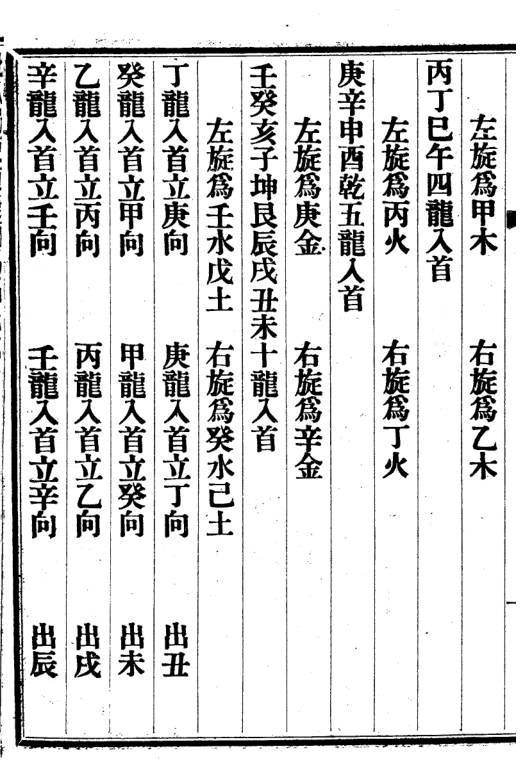 左旋爲甲木　右旋爲乙木
丙丁巳午四龍入首
左旋爲丙火　右旋爲丁火
庚辛申酉乾五龍入首
左旋爲庚金　右旋爲辛金
壬癸亥子坤艮辰戌丑未十龍入首
左旋爲壬水戊土　右旋爲癸水己土
丁龍入首立庚向　庚龍入首立丁向　出丑
癸龍入首立甲向　甲龍入首立癸向　出未
乙龍入首立丙向　丙龍入首立乙向　出戌
辛龍入首立壬向　壬龍入首立辛向　出辰